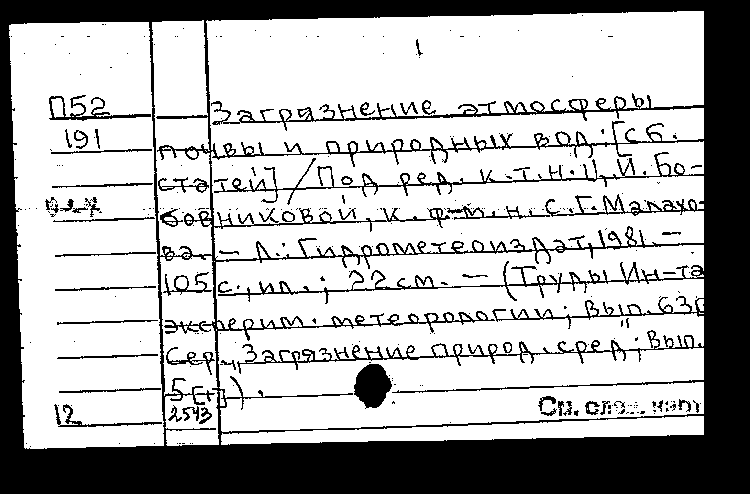 1
П52 Загрязнение атмосферы
191 почвы и природных вод: [сб.
статей] / Под ред. к.т.н. Ц. И. Бо-
бовниковой, к. ф-м. н. С. Г. Малахо-
ва. — Л.: Гидрометеоиздат, 1981. —
105 с., ил.; 22 см. — (Труды Ин-та
эксперим. метеорологии; Вып.
Сер. „Загрязнение природ. сред"; Вып.
5
12 2543 См. след. карт